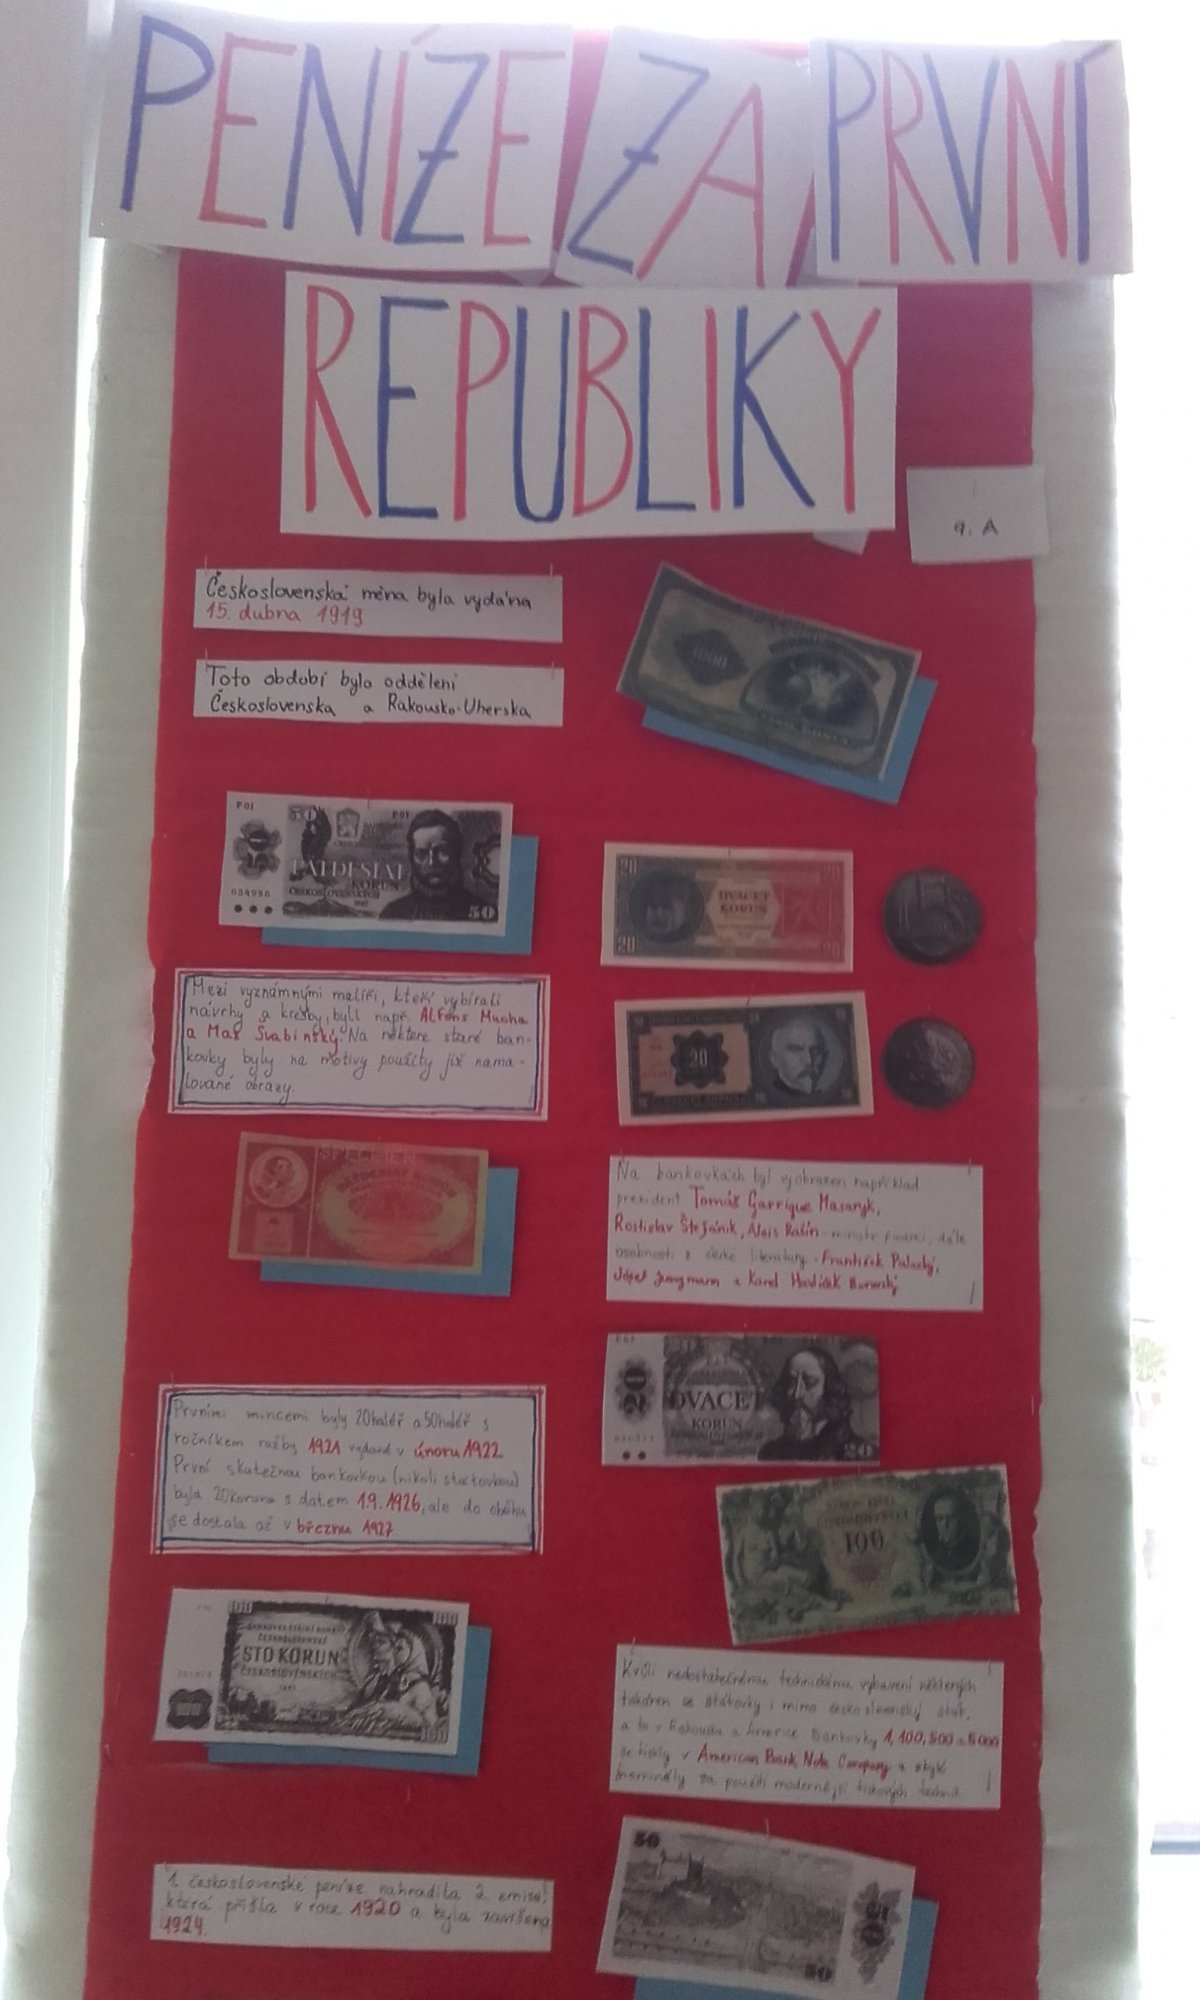 PENÍZE ZA PRVNÍ
REPUBLIKY
9. A
Československá měna byla vydána
15. dubna 1919
Toto období bylo oddělení
Československa a Rakousko-Uherska
1000
F 01
PADESÁT
KORUN
ČESKOSLOVENSKÝCH
50
20
20
DVACET
KORUN
20
20
5
Mezi významnými malíři, kteří vybírali
návrhy a kresby, byli např. Alfons Mucha
a Max Švabinský. Na některé staré ban-
kovky byly na motivy použity již nama-
lované obrazy.
20
SPECIMEN
Na bankovkách byl vyobrazen například
prezident Tomáš Garrigue Masaryk,
Rostislav Štefánik, Alois Rašín - ministr financí, dále
osobnosti z české literatury - František Palacký,
Josef Jungmann a Karel Havlíček Borovský
DVACET
KORUN
20
Prvními mincemi byly 20haléř a 50haléř s
ročníkem ražby 1921 vydané v únoru 1922
První skutečnou bankovkou (nikoli státovkou)
byla 20koruna s datem 1.9. 1926, ale do oběhu
se dostala až v březnu 1927
100
100
100
STO KORUN
ČESKOSLOVENSKÝCH
Kvůli nedostatečnému technickému vybavení některých
tiskáren se státovky i mimo československý stát,
a to v Rakousku a Americe Bankovky 1, 100, 500 a 5000
se tiskly v American Bank Note Company a
nominály za použití modernější tiskových technik
1. československé peníze nahradila 2. emise,
která přišla v roce 1920 a byla završena
1924.
50
50
50